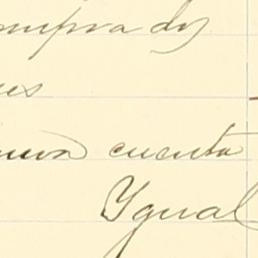 ompra dos
es
nueva cuenta
Ygual